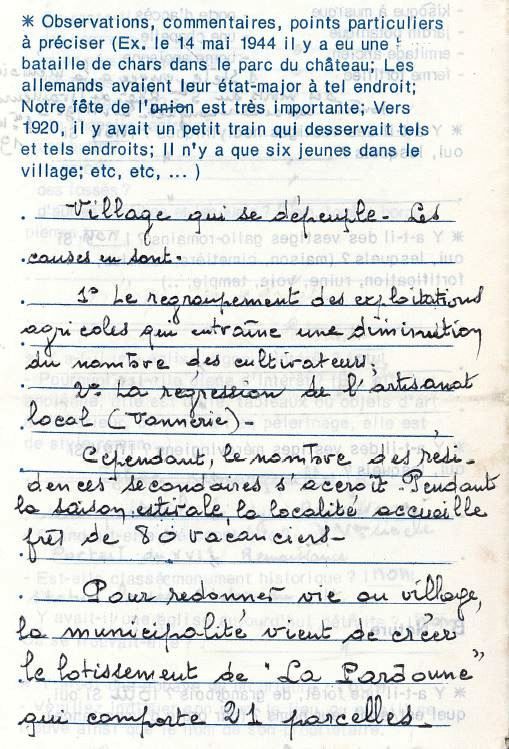 * Observations, commentaires, points particuliers
à préciser (Ex. le 14 mai 1944 il y a eu une
bataille de chars dans le parc du château; Les
allemands avaient leur état-major à tel endroit;
Notre fête de l'union est très importante; Vers
1920, il y avait un petit train qui desservait tels
et tels endroits; Il n'y a que six jeunes dans le
village; etc, etc, ... )
Village qui se dépeuple. Les
causes en sont.
1° Le regroupement des exploitations
agricoles qui entraîne une diminution
du nombre des cultivateurs;
2° La regression de l'artisanat
local (Vannerie).
Cependant, le nombre des rési-
dences secondaires s'accroît. Pendant
la saison estivale la localité accueille
près de 80 vacanciers.
Pour redonner vie au village,
la municipalité vient de créer
le lotissement de "La Pardonne"
qui comporte 21 parcelles.